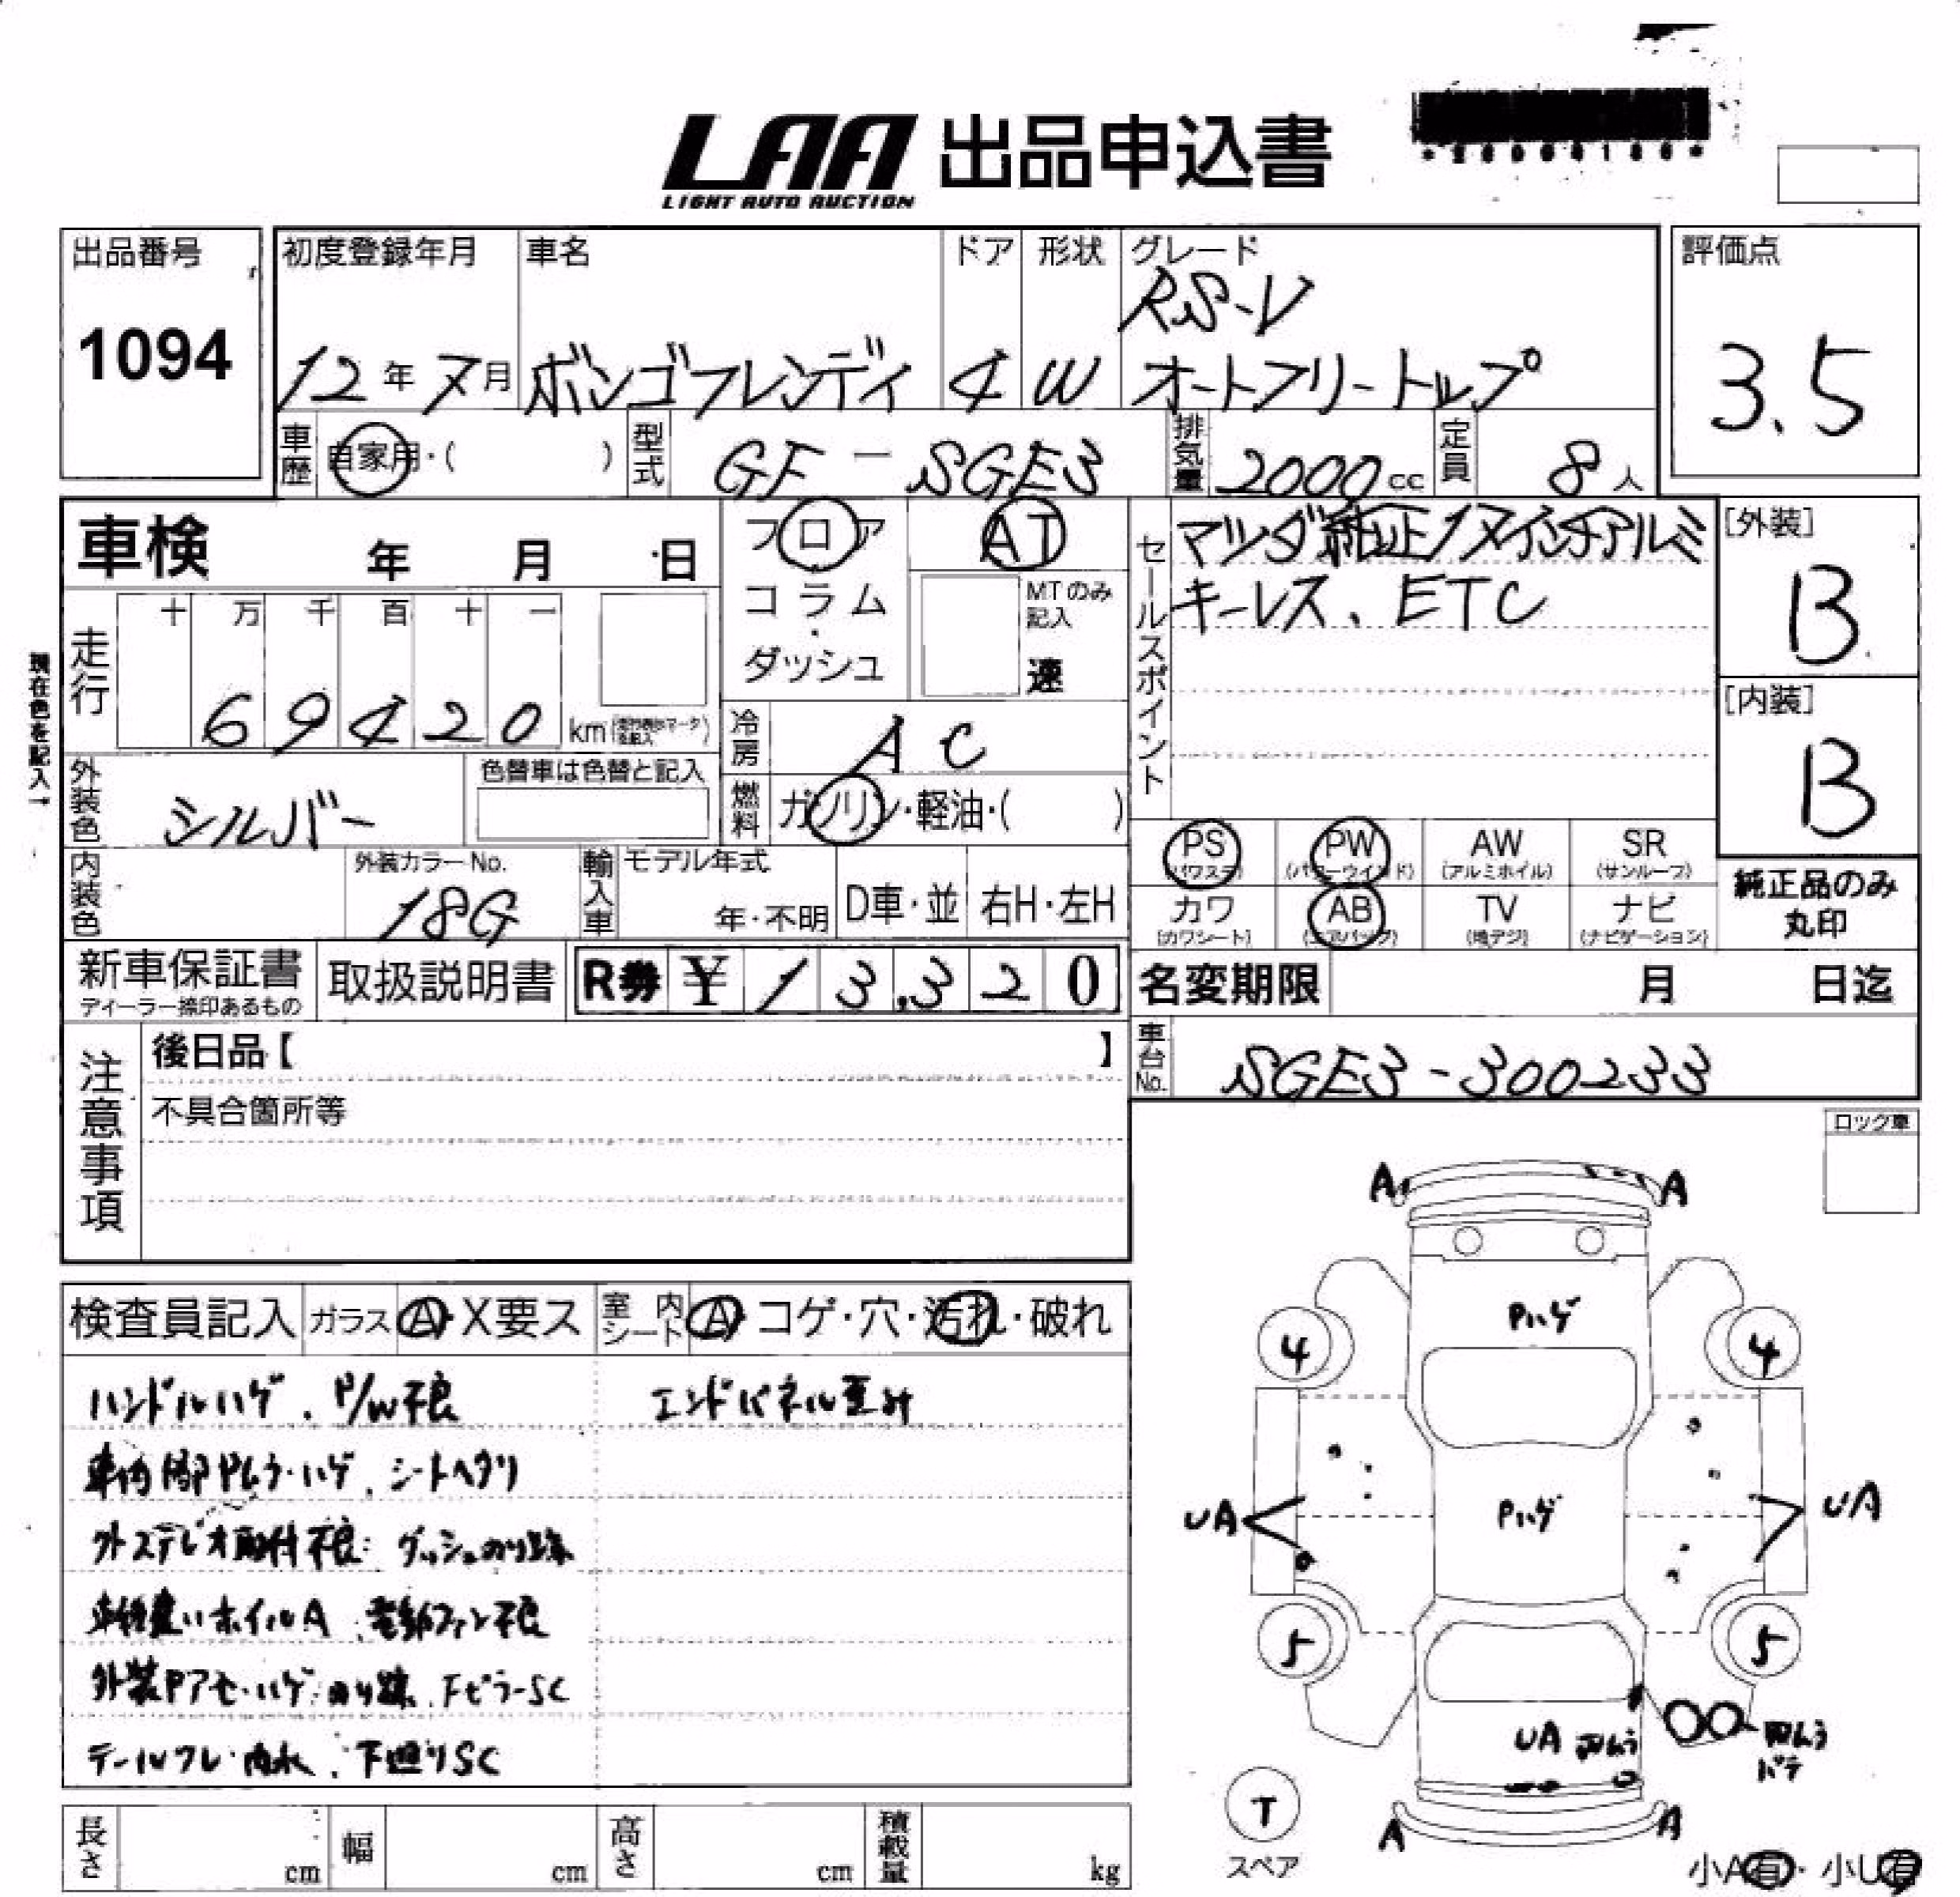 LAA 出品申込書
LIGHT AUTO AUCTION
出品番号
1094
初度登録年月
12年7月
車名
ボンゴフレンディ
ドア
4
形状
W
グレード
RS-V
オートフリートップ
評価点
3.5
車歴
自家用・( )
型式
GF-SGE3
排気量
2000cc
定員
8人
車検 年 月 日
走行
十 万 千 百 十 一
69420 km
現在色を記入→
フロア
コラム
・
ダッシュ
AT
MTのみ
記入
速
セールスポイント
マツダ純正17インチアルミ
キーレス、ETC
[外装]
B
[内装]
B
冷房
AC
燃料
ガソリン・軽油・( )
外装色
シルバー
色替車は色替と記入
内装色
外装カラーNo.
18G
輸入車
モデル年式
年・不明
D車・並
右H・左H
PS
(パワステ)
PW
(パワーウインド)
AW
(アルミホイル)
SR
(サンルーフ)
カワ
(カワシート)
AB
(エアバック)
TV
(地デジ)
ナビ
(ナビゲーション)
純正品のみ
丸印
新車保証書
ディーラー捺印あるもの
取扱説明書
R券 ¥13,320
名変期限 月 日迄
車台No.
SGE3-300233
注意事項
後日品【 】
不具合箇所等
ロック車
検査員記入
ガラス
A・X要ス
室内
シート
A・コゲ・穴・汚れ・破れ
ハンドルハゲ、P/W不良
エンドパネル歪み
車内 Pムラ・ハゲ、シートヘタリ
外ステレオ取付不良 ダッシュのり跡
車種違いホイルA 電動ファン不良
外装Pアセ・ハゲ のり跡、FピラーSC
テールワレ・内水 下廻りSC
A
A
Pハゲ
4
4
UA
Pハゲ
UA
5
5
UA
T
スペア
A
A
パテ
小A有・小U有
長さ cm
幅 cm
高さ cm
積載量 kg